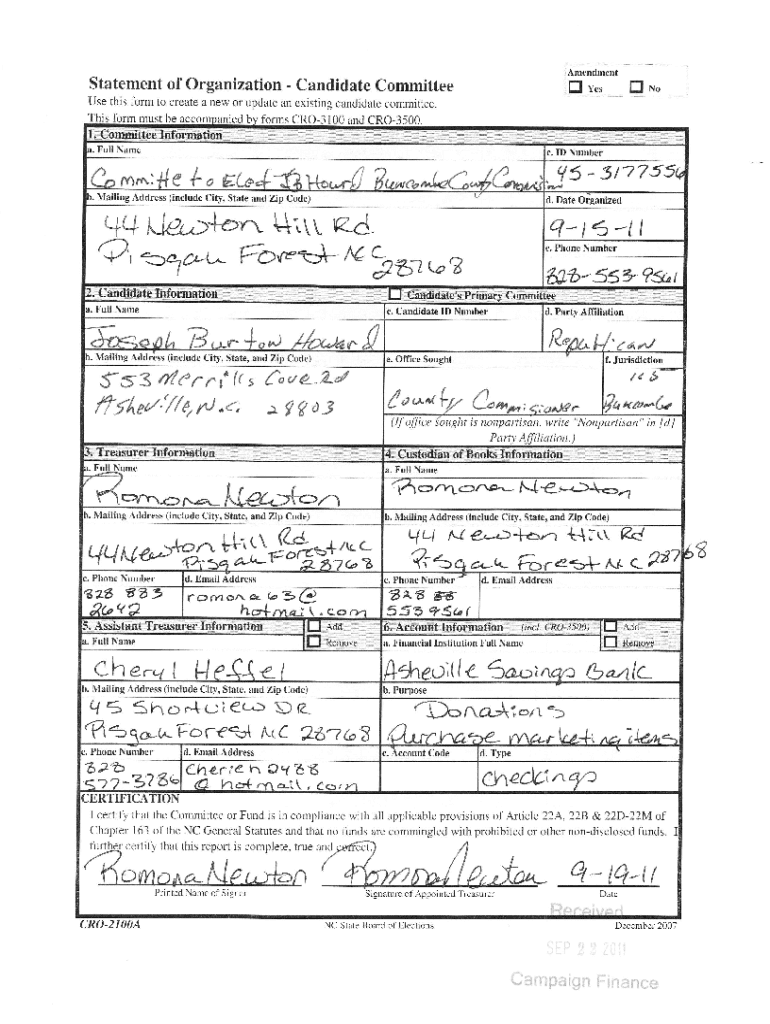 Statement of Organization - Candidate Committee
Amendment
Yes No
Use this form to create a new or update an existing candidate committee.
This form must be accompanied by forms CRO-3100 and CRO-3500.
1. Committee Information
a. Full Name
c. ID Number
Committe to Elect JB Howard Buncombe County
45-3177556
b. Mailing Address (include City, State and Zip Code)
d. Date Organized
44 Newton Hill Rd.
9-15-11
Pisgah Forest NC
28768
e. Phone Number
828-553-9561
2. Candidate Information
Candidate's Primary Committee
a. Full Name
c. Candidate ID Number
d. Party Affiliation
Joseph Burton Howard
Republican
b. Mailing Address (include City, State, and Zip Code)
e. Office Sought
f. Jurisdiction
553 Merrills Cove Rd
Asheville, N.C. 28803
County Commisioner
Buncombe
(If office sought is nonpartisan, write "Nonpartisan" in [d]
Party Affiliation.)
3. Treasurer Information
4. Custodian of Books Information
a. Full Name
a. Full Name
Romona Newton
Romona Newton
b. Mailing Address (include City, State, and Zip Code)
b. Mailing Address (include City, State, and Zip Code)
44 Newton Hill Rd
Pisgah Forest NC
28768
44 Newton Hill Rd
Pisgah Forest NC 28768
c. Phone Number
d. Email Address
c. Phone Number
d. Email Address
828 883
2642
romona63@
hotmail.com
828
553 9561
5. Assistant Treasurer Information
Add
Remove
6. Account Information (incl. CRO-3500)
Add
Remove
a. Full Name
a. Financial Institution Full Name
Cheryl Heffel
Asheville Savings Bank
b. Mailing Address (include City, State, and Zip Code)
b. Purpose
45 Shortview DR
Pisgah Forest NC 28768
Donations
Purchase marketing items
c. Phone Number
d. Email Address
c. Account Code
d. Type
828
577-3786
Cherieh2488
@hotmail.com
checkings
CERTIFICATION
I certify that the Committee or Fund is in compliance with all applicable provisions of Article 22A, 22B & 22D-22M of
Chapter 163 of the NC General Statutes and that no funds are commingled with prohibited or other non-disclosed funds. I
further certify that this report is complete, true and correct.
Romona Newton Romona Newton 9-19-11
Printed Name of Signer
Signature of Appointed Treasurer
Date
Received
CRO-2100A
NC State Board of Elections
December 2007
SEP 22 2011
Campaign Finance